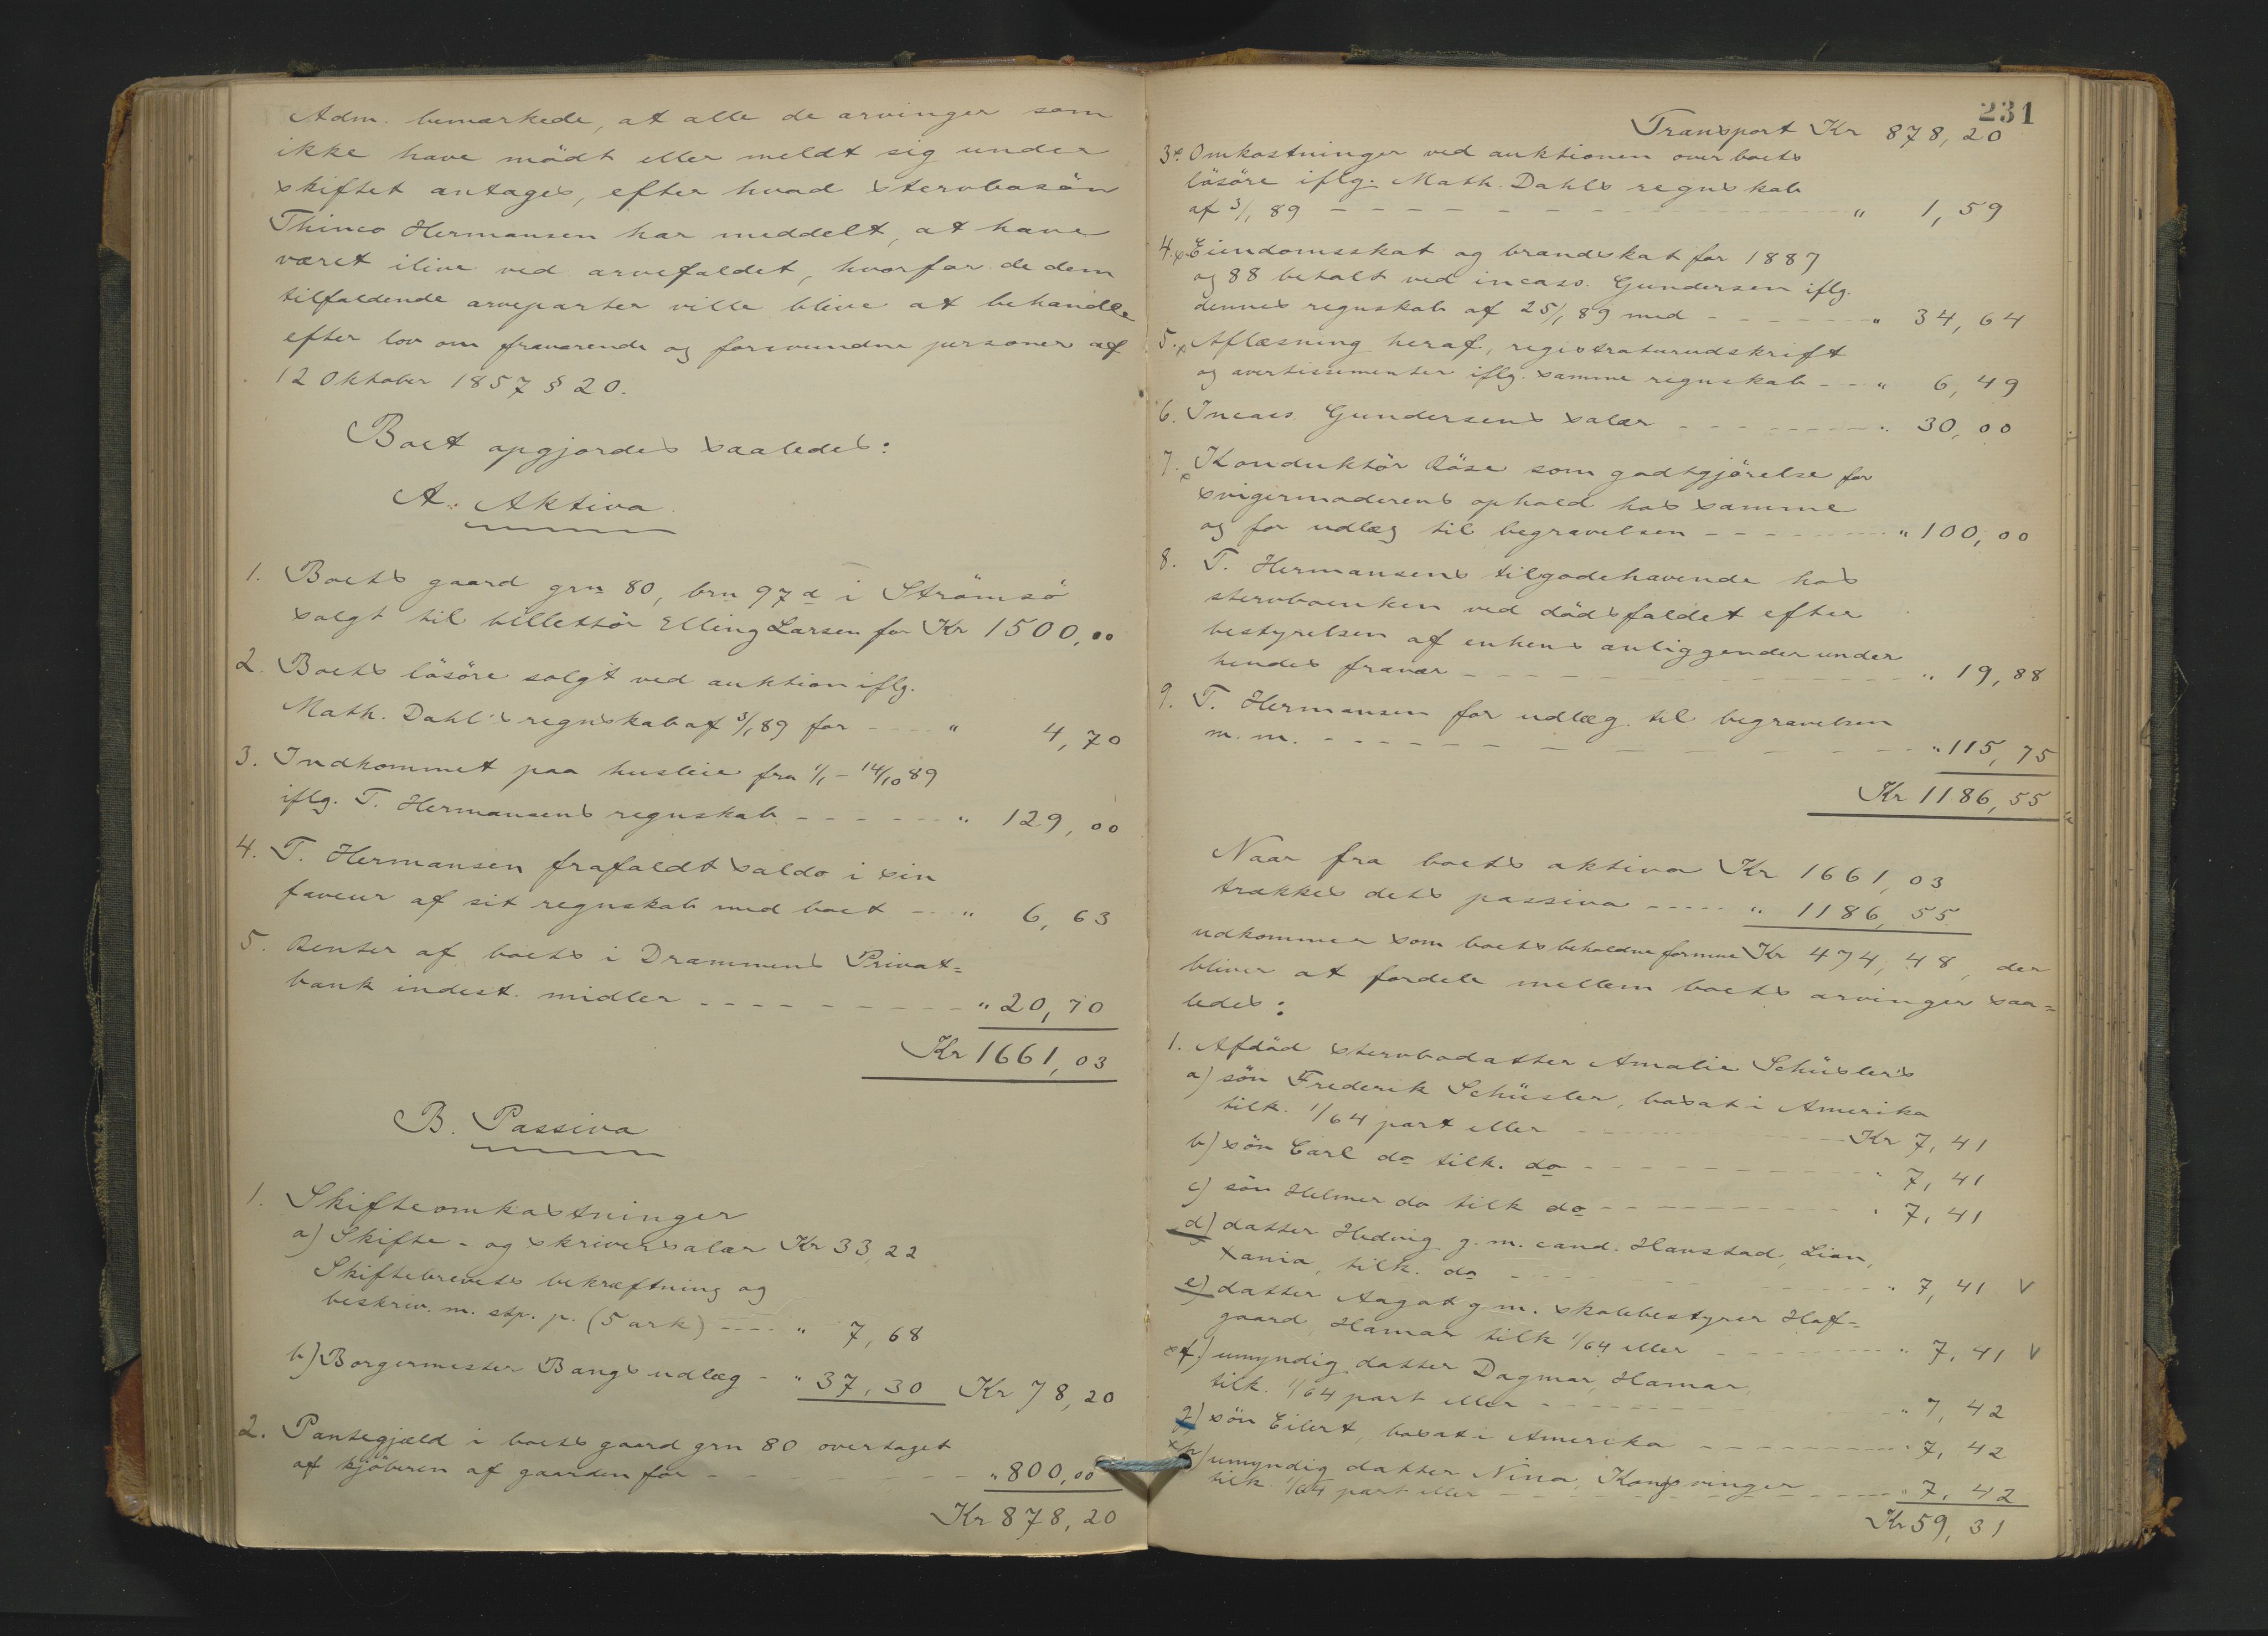 Adm. bemærkede, at alle de arvinger som
ikke have mödt eller meldt sig under
skiftet antages, efter hvad stervbosön
Thinco Hermansen har meddelt, at have
været ilive ved arvefaldet, hvorfor de dem
tilfaldende arveparter ville blive at behandle
efter lov om fraværende og forsvundne personer af
12 Oktober 1857 § 20.
Boet opgjordes saaledes:
A. Aktiva.
1. Boets gaard grn 80, brn 97d i Strömsö
solgt til billettör Elling Larsen for Kr 1500,00
2. Boets lösöre solgt ved auktion iflg.
Math. Dahl's regnskab af 3/1 89 for - - - - " 4,70
3. Indkommet paa husleie fra 1/1 - 14/10 89
iflg. T. Hermansens regnskab - - - - - - " 129,00
4. T. Hermansen frafaldt saldo i sin
faveur af sit regnskab med boet - - - " 6,63
5. Renter af boets i Drammens Privat=
bank indest. midler - - - - - - - - - " 20,70
Kr 1661,03
B. Passiva
1. Skifteomkostninger
a) Skifte- og skriversalær Kr 33,22
Skiftebrevets bekræftning og
beskriv. m. stp. p. (5 ark) - - - - " 7,68
b) Borgermester Bangs udlæg - " 37,30 Kr 78,20
2. Pantegjæld i boets gaard grn 80 overtaget
af kjöberen af gaarden for - - - - - - - " 800,00
Kr 878,20
231
Transport Kr 878,20
3. Omkostninger ved auktionen over boets
lösöre iflg. Math. Dahls regnskab
af 3/1 89 - - - - - - - - - - - - " 1,59
4. Eiendomsskat og brandskat for 1887
og 88 betalt ved incass. Gundersen iflg.
dennes regnskab af 25/1 89 med - - - - - - " 34,64
5. Aflæsning heraf, registraturudskrift
og avertissementer iflg. samme regnskab - - " 6,49
6. Incass. Gundersens salær - - - - - - - - " 30,00
7. Konduktör Röse som godtgjörelse for
svigermoderens ophold hos samme
og for udlæg til begravelsen - - - - - - - - " 100,00
8. T. Hermansens tilgodehavende hos
stervboenken ved dödsfaldet efter
bestyrelsen af enkens anliggender under
hendes fravær - - - - - - - - - - - - " 19,88
9. T. Hermansen for udlæg til begravelsen
m. m. - - - - - - - - - - - - - - " 115,75
Kr 1186,55
Naar fra boets aktiva Kr 1661,03
trækkes dets passiva - - - - - " 1186,55
udkommer som boets beholdne formue Kr 474,48, der
bliver at fordele mellem boets arvinger saa=
ledes:
1. Afdöd stervbodatter Amalie Schüslers
a) sön Frederik Schüsler, bosat i Amerika
tilk. 1/64 part eller - - - - - - - - - - Kr 7,41
b) sön Carl do tilk. do - - - - - - - - - - " 7,41
c) sön Helmer do tilk do - - - - - - - - - " 7,41
d) datter Hedvig g. m. cand. Hanstad, Lian,
Xania, tilk. do - - - - - - - - - - " 7,41 V
e) datter Aagot g. m. skolebestyrer Hof=
gaard, Hamar tilk 1/64 eller - - - - - - - - " 7,41 V
x f) umyndig datter Dagmar, Hamar,
tilk. 1/64 part eller - - - - - - - - - - " 7,42
g) sön Eilert, bosat i Amerika - - - - - - - - " 7,42
x h) umyndig datter Nina, Kongsvinger
tilk. 1/64 part eller - - - - - - - - - - " 7,42
Kr 59,31